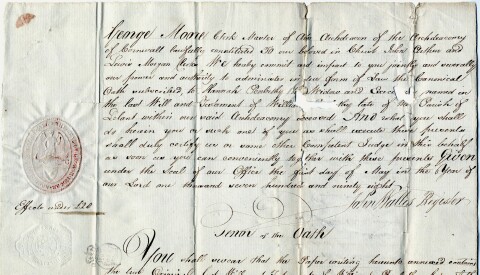 George Moore Clerk Master of Arts Archdeacon of the Archdeaconry
of Cornwall lawfully constituted To our beloved in Christ John Arthur and
Lewis Morgan Clerks We hereby commit and impart to you jointly and severally
our power and authority to administer in due form of Law the Canonical
Oath subscribed to Hannah Penberthy Widow and named in
the last Will and Testament of William late of the Parish of
Lelant within our said Archdeaconry deceased And what you shall
do herein you or such one of you as shall execute these presents
shall duly certify us or some other Competent Judge in this behalf
as soon as you can conveniently together with these presents Given
under the Seal of our Office the first day of May in the Year of
our Lord one thousand seven hundred and ninety eight
John Wallis Register
Effects under £20
Tenor of the Oath
You shall swear that the Paper writing hereunto annexed contains
the true Will